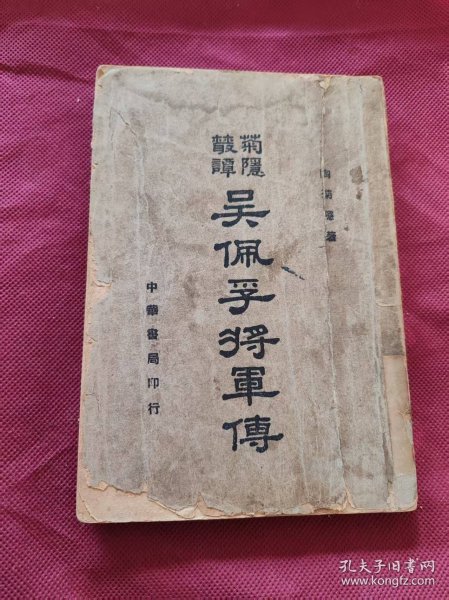 陶菊隱著
菊隱
叢譚
吴佩孚将軍傳
中華書局印行
孔夫子旧书网
www.kongfz.com